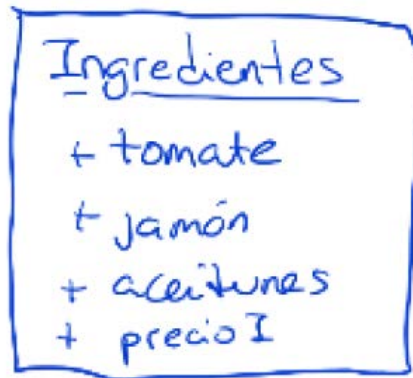 Ingredientes
+ tomate
+ jamón
+ aceitunas
+ precio I